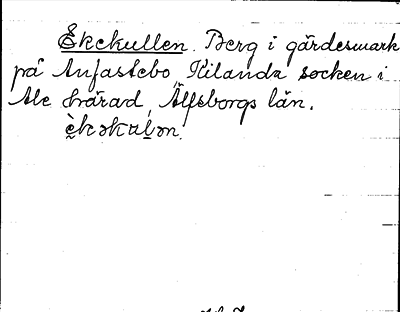 Ekekullen. Berg i gärdesmark
på Anfastebo Kilanda socken i
Ale härad, Älfsborgs län.